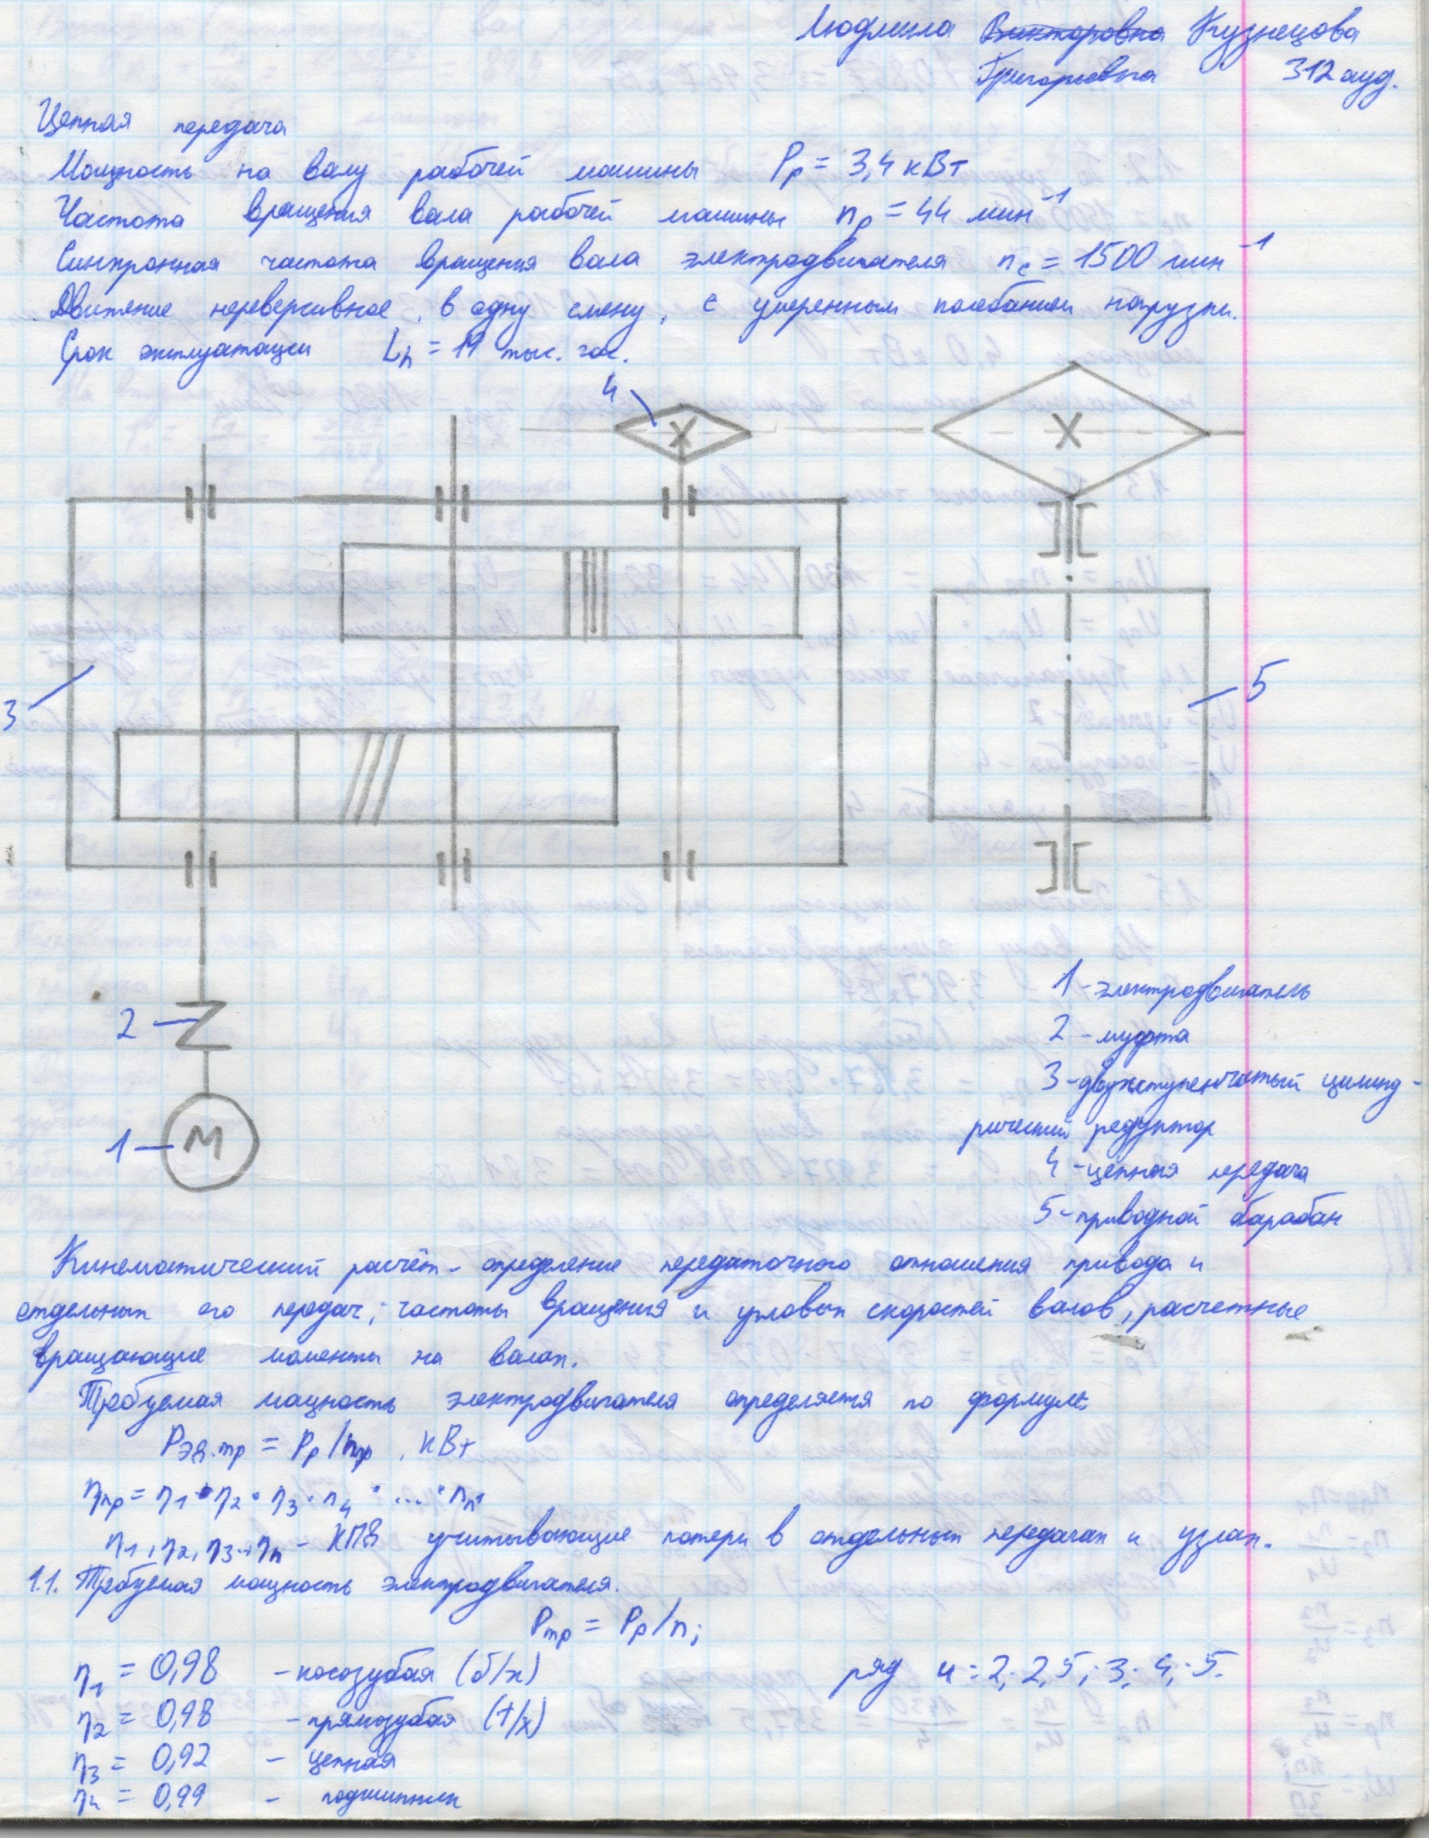 Людмила Викторовна Кузнецова
Григорьевна 312 ауд.
Цепная передача
Мощность на валу рабочей машины Pр = 3,4 кВт
Частота вращения вала рабочей машины nр = 44 мин⁻¹
Синхронная частота вращения вала электродвигателя nс = 1500 мин⁻¹
Движение нереверсивное, в одну смену, с умеренным колебанием нагрузки.
Срок эксплуатации Lh = 19 тыс. час.
4
3
5
2
1 M
1 - электродвигатель
2 - муфта
3 - двухступенчатый цилинд-
рический редуктор
4 - цепная передача
5 - приводной барабан
Кинематический расчёт - определение передаточного отношения привода и
отдельных его передач; частоты вращения и угловых скоростей валов, расчетные
вращающие моменты на валах.
Требуемая мощность электродвигателя определяется по формуле:
Pэд.тр = Pр/ηпр, кВт
ηпр = η1 · η2 · η3 · η4 · ... · ηn
η1, η2, η3...ηn - КПД учитывающие потери в отдельных передачах и узлах.
1.1. Требуемая мощность электродвигателя.
Pтр = Pр/η;
η1 = 0,98 - косозубая (б/х)
ряд u: 2; 2,5; 3; 4; 5.
η2 = 0,98 - прямозубая (т/х)
η3 = 0,92 - цепная
η4 = 0,99 - подшипник